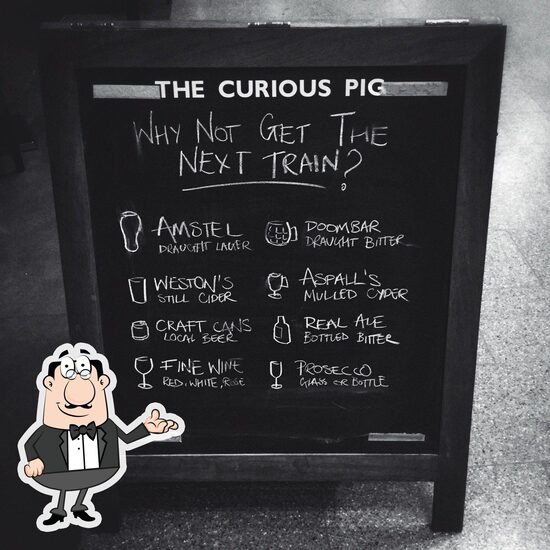 THE CURIOUS PIG
WHY NOT GET THE
NEXT TRAIN?
AMSTEL
DRAUGHT LAGER
DOOMBAR
DRAUGHT BITTER
WESTON'S
STILL CIDER
ASPALL'S
MULLED CYDER
CRAFT CANS
LOCAL BEER
REAL ALE
BOTTLED BITTER
FINE WINE
RED, WHITE, ROSE
PROSECCO
GLASS OR BOTTLE